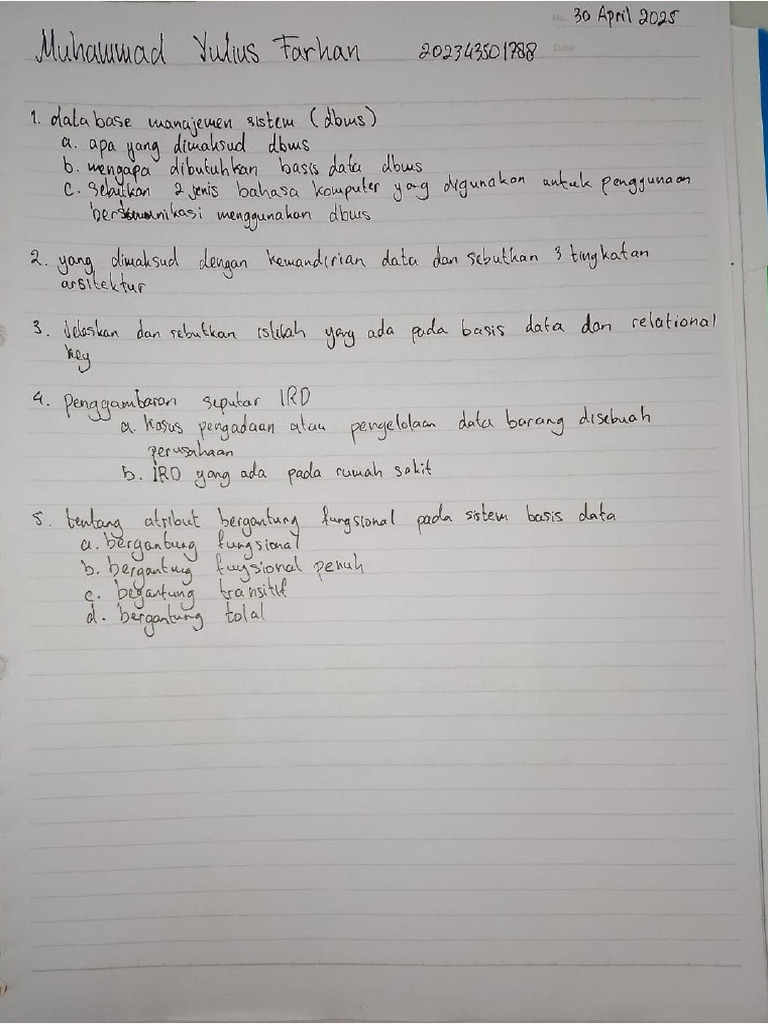 No. 30 April 2025
Muhammad Yulius Farhan 202343501788
Date
1. database manajemen sistem (dbms)
a. apa yang dimaksud dbms
b. mengapa dibutuhkan basis data dbms
c. Sebutkan 2 jenis bahasa komputer yang digunakan untuk penggunaan
menggunakan dbms
2. yang dimaksud dengan kemandirian data dan sebutkan 3 tingkatan
arsitektur
3. Jelaskan dan sebutkan istilah yang ada pada basis data dan relational
key
4. Penggambaran seputar IRD
a. Kasus pengadaan atau pengelolaan data barang disebuah
perusahaan
b. IRD yang ada pada rumah sakit
5. tentang atribut bergantung fungsional pada sistem basis data
a. bergantung fungsional
b. bergantung fuysional penuh
c. begantung transitif
d. bergantung total